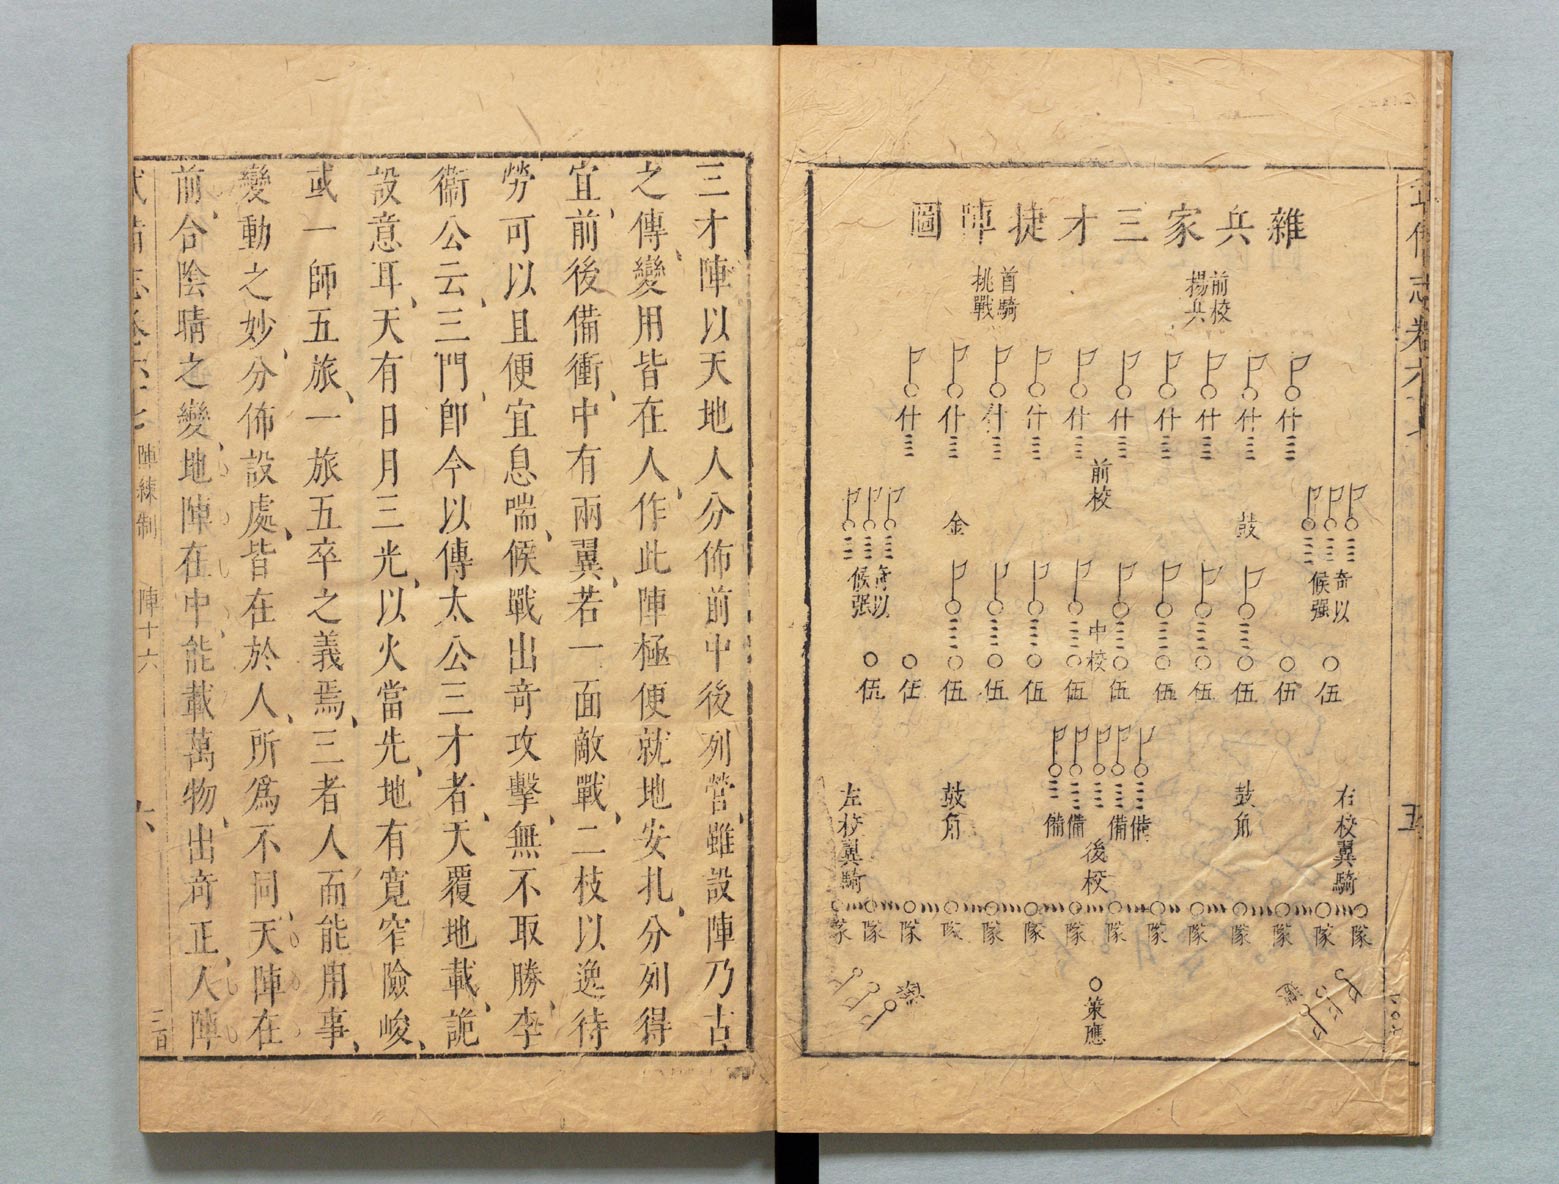 雜兵家三才捷陣圖
前校
揚兵
首騎
挑戰
什 什 什 什 什 什 什 什 什 什
前校
鼓
金
奇以
候强
奇以
候强
中校
伍 伍 伍 伍 伍 伍 伍 伍 伍 伍 伍 伍
備 備 備 備
後校
鼓角
鼓角
右校翼騎
左校翼騎
隊 隊 隊 隊 隊 隊 隊 隊 隊 隊 隊 隊 隊 隊
策應
五
三才陣以天地人分佈前中後列營、雖設陣乃古
之傳、變用皆在人、作此陣極便就地安扎、分列得
宜、前後備衝、中有兩翼、若一面敵戰、二枝以逸待
勞可以且便宜息喘、候戰出奇攻擊、無不取勝、李
衞公云、三門、即今以傳太公三才者、天覆地載、詭
設意耳、天有日月三光、以火當先、地有寬窄險峻、
或一師五旅、一旅五卒之義焉、三者人而能用事、
變動之妙、分佈設處、皆在於人、所爲不同、天陣在
前、合陰晴之變、地陣在中、能載萬物、出奇正、人陣
陣練制 陣十六
六